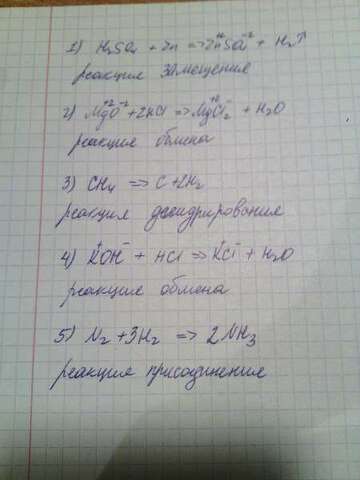 1) H₂SO₄ + Zn => Zn⁺²SO₄⁻² + H₂↑
реакция замещения
2) Mg⁺²O⁻² + 2HCl => Mg⁺²Cl₂⁻ + H₂O
реакция обмена
3) CH₄ => C + 2H₂
реакция дегидрирования
4) K⁺OH⁻ + HCl => K⁺Cl⁻ + H₂O
реакция обмена
5) N₂ + 3H₂ => 2NH₃
реакция присоединения